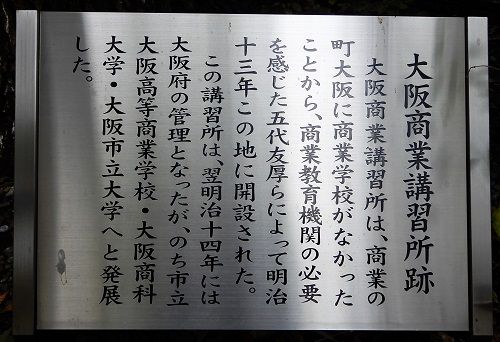 大阪商業講習所跡
大阪商業講習所は、商業の
町大阪に商業学校がなかった
ことから、商業教育機関の必要
を感じた五代友厚らによって明治
十三年この地に開設された。
この講習所は、翌明治十四年には
大阪府の管理となったが、のち市立
大阪高等商業学校・大阪商科
大学・大阪市立大学へと発展
した。